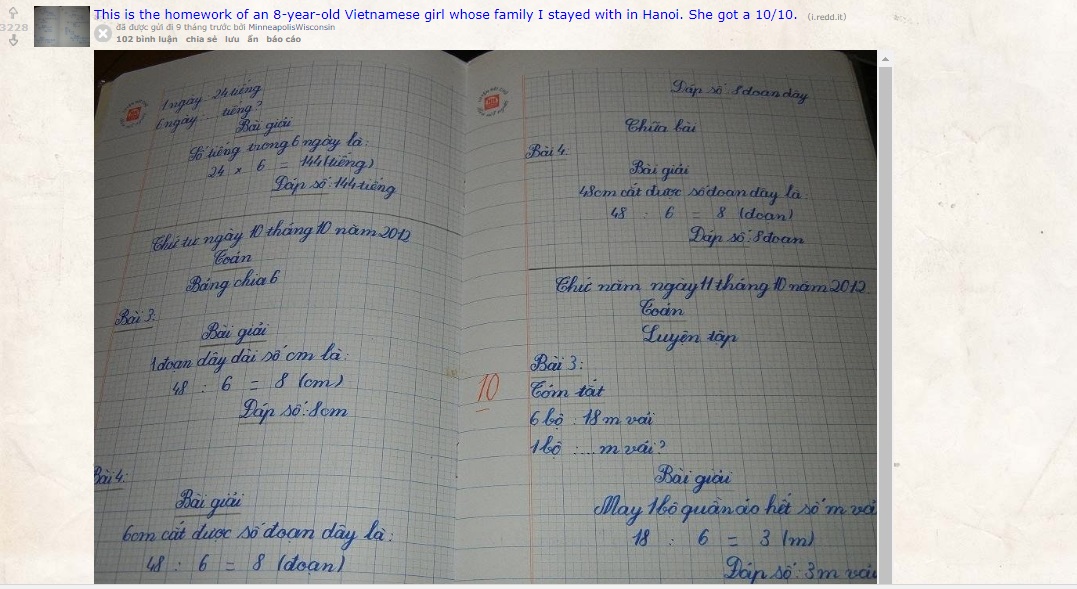 This is the homework of an 8-year-old Vietnamese girl whose family I stayed with in Hanoi. She got a 10/10. (i.redd.it)
3228
đã được gửi đi 9 tháng trước bởi MinneapolisWisconsin
102 bình luận chia sẻ lưu ẩn báo cáo
1 ngày : 24 tiếng
6 ngày : ... tiếng?
Bài giải
Số tiếng trong 6 ngày là:
24 × 6 = 144 (tiếng)
Đáp số: 144 tiếng
Thứ tư ngày 10 tháng 10 năm 2012
Toán
Bảng chia 6
Bài 3:
Bài giải
1 đoạn dây dài số cm là:
48 : 6 = 8 (cm)
Đáp số: 8cm
Bài 4:
Bài giải
6cm cắt được số đoạn dây là:
48 : 6 = 8 (đoạn)
Đáp số: 8 đoạn dây
Chữa bài
Bài 4.
Bài giải
48cm cắt được số đoạn dây là
48 : 6 = 8 (đoạn)
Đáp số: 8 đoạn
Thứ năm ngày 11 tháng 10 năm 2012
Toán
Luyện tập
Bài 3:
10
Tóm tắt
6 bộ : 18 m vải
1 bộ : ... m vải?
Bài giải
May 1 bộ quần áo hết số m vả
18 : 6 = 3 (m)
Đáp số: 3m vải